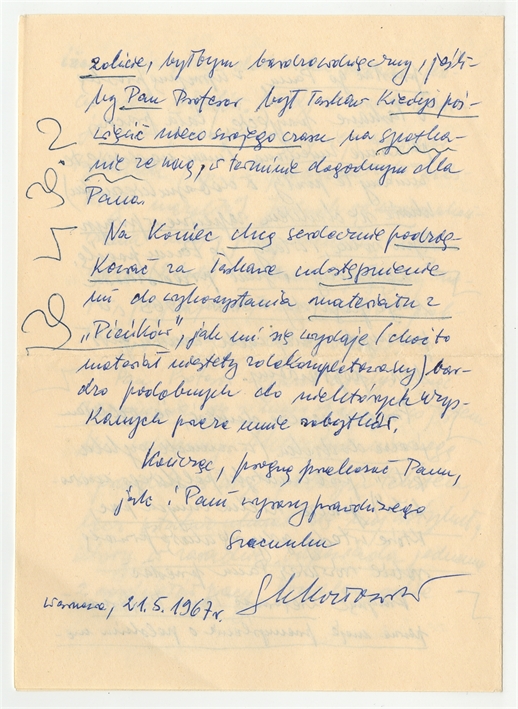 zolicie, byłbym bardzo wdzięczny, jeśli-
by Pan Profesor był łaskaw kiedyś poś-
więcić nieco swojego czasu na spotka-
nie ze mną, w terminie dogodnym dla
Pana.
Na koniec chcę serdecznie podzię-
kować za łaskawe udostępnienie
mi do wykorzystania materiału z
„Pieńków”, jak mi się wydaje (choć to
materiał niestety zdekompletowany) bar-
dzo podobnych do niektórych uzys-
kanych przeze mnie zabytków.
Kończąc, pragnę przekazać Panu,
jak i Pani wyrazy prawdziwego
szacunku
Warszawa, 21.5.1967r.